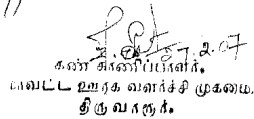 7.2.07
கண் காணிப்பாளர்.
மாவட்ட ஊரக வளர்ச்சி முகமை,
திருவாரூர்.